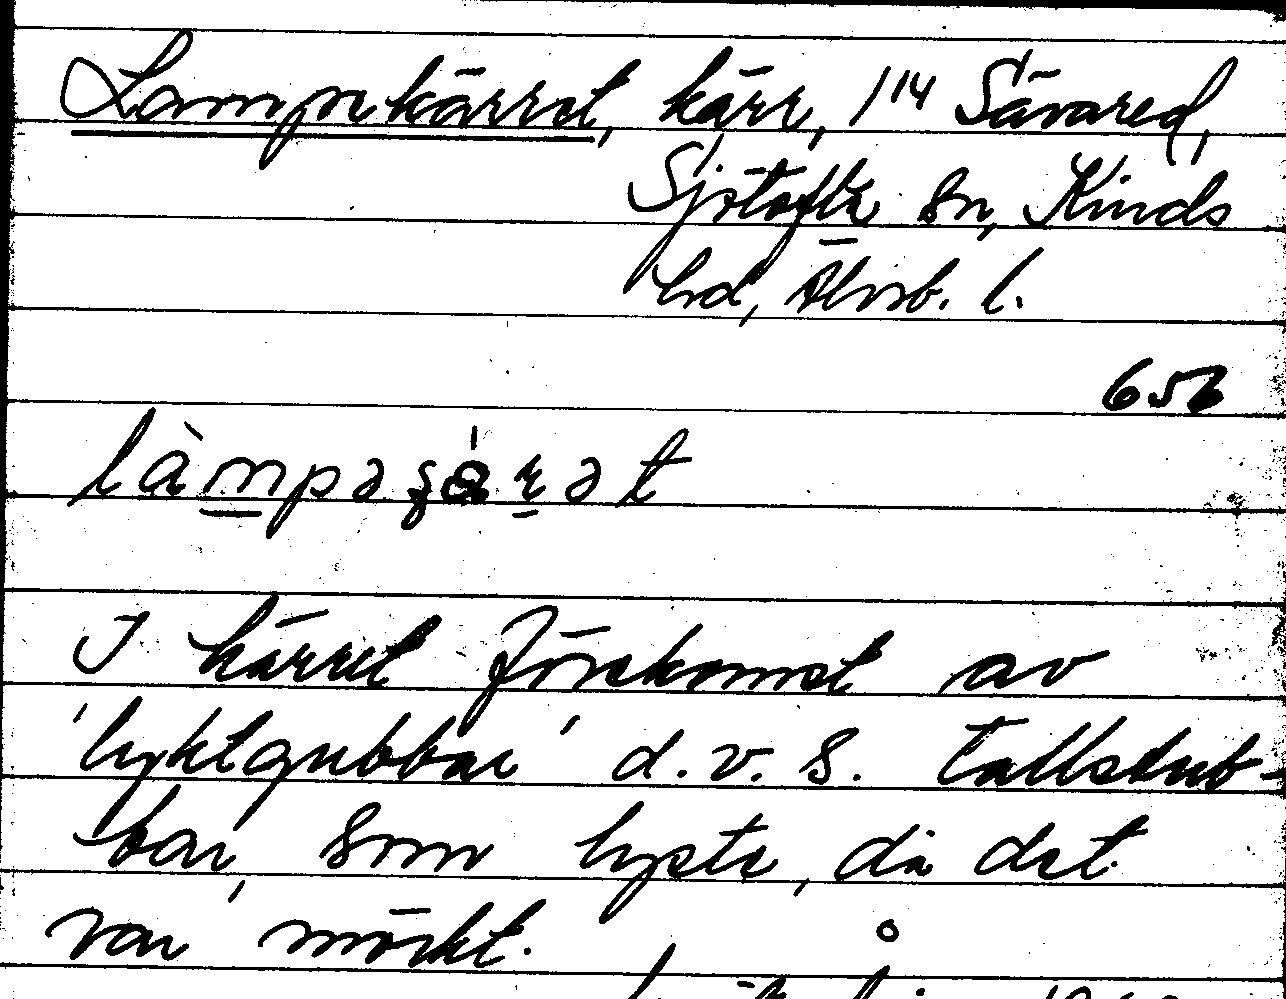 Lampekärret, kärr, 1/14 Sävared,
Sjötofta sn, Kinds
hd, Älvsb. l.
656
làmpəʂárət
I kärret förekomst av
'lyktgubbar' d.v.s. tallstub-
bar, som lyste, då det
var mörkt.